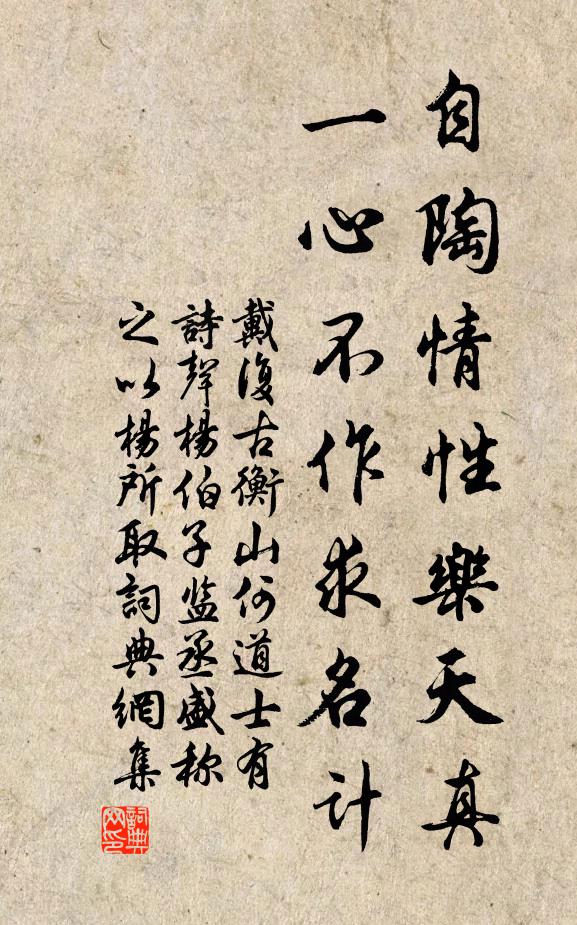 自陶情性樂天真
一心不作求名計
戴復古衡山何道士有
詩聲楊伯子监丞盛称
之以楊所取詞典網集
詞典网印